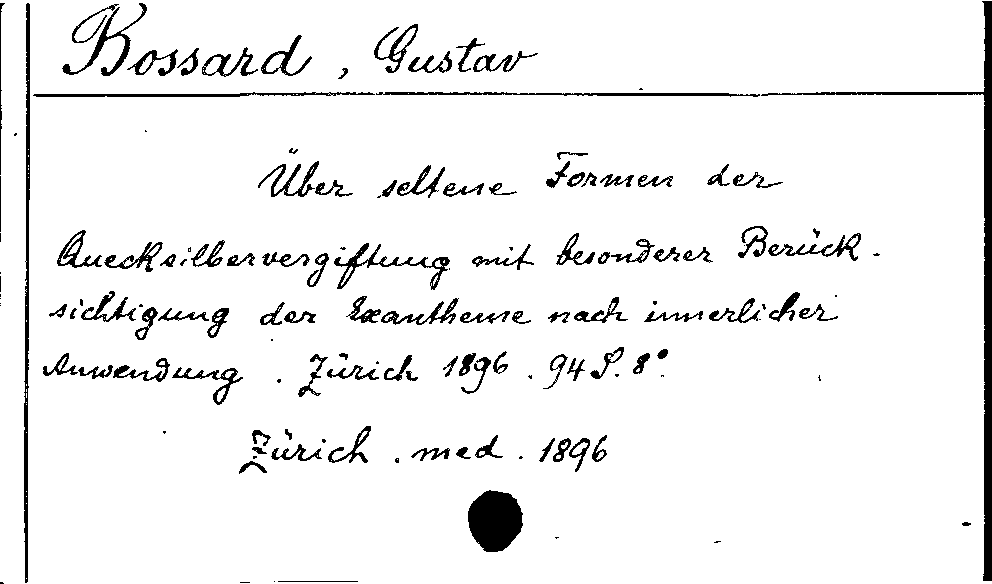 Bossard, Gustav
Über seltene Formen der
Quecksilbervergiftung mit besonderer Berück-
sichtigung der Exantheme nach innerlicher
Anwendung. Zürich 1896. 94 S. 8°.
Zürich. med. 1896